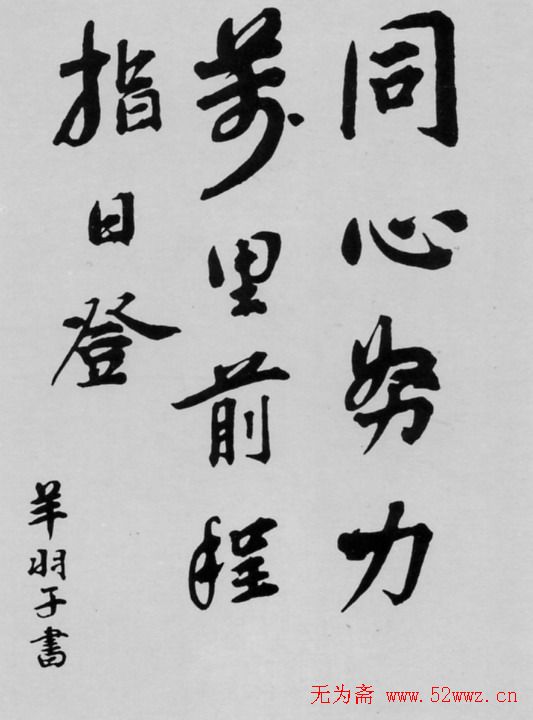 同心努力
萬里前程
指日登
羊羽子書
无为斋 www.52wwz.cn